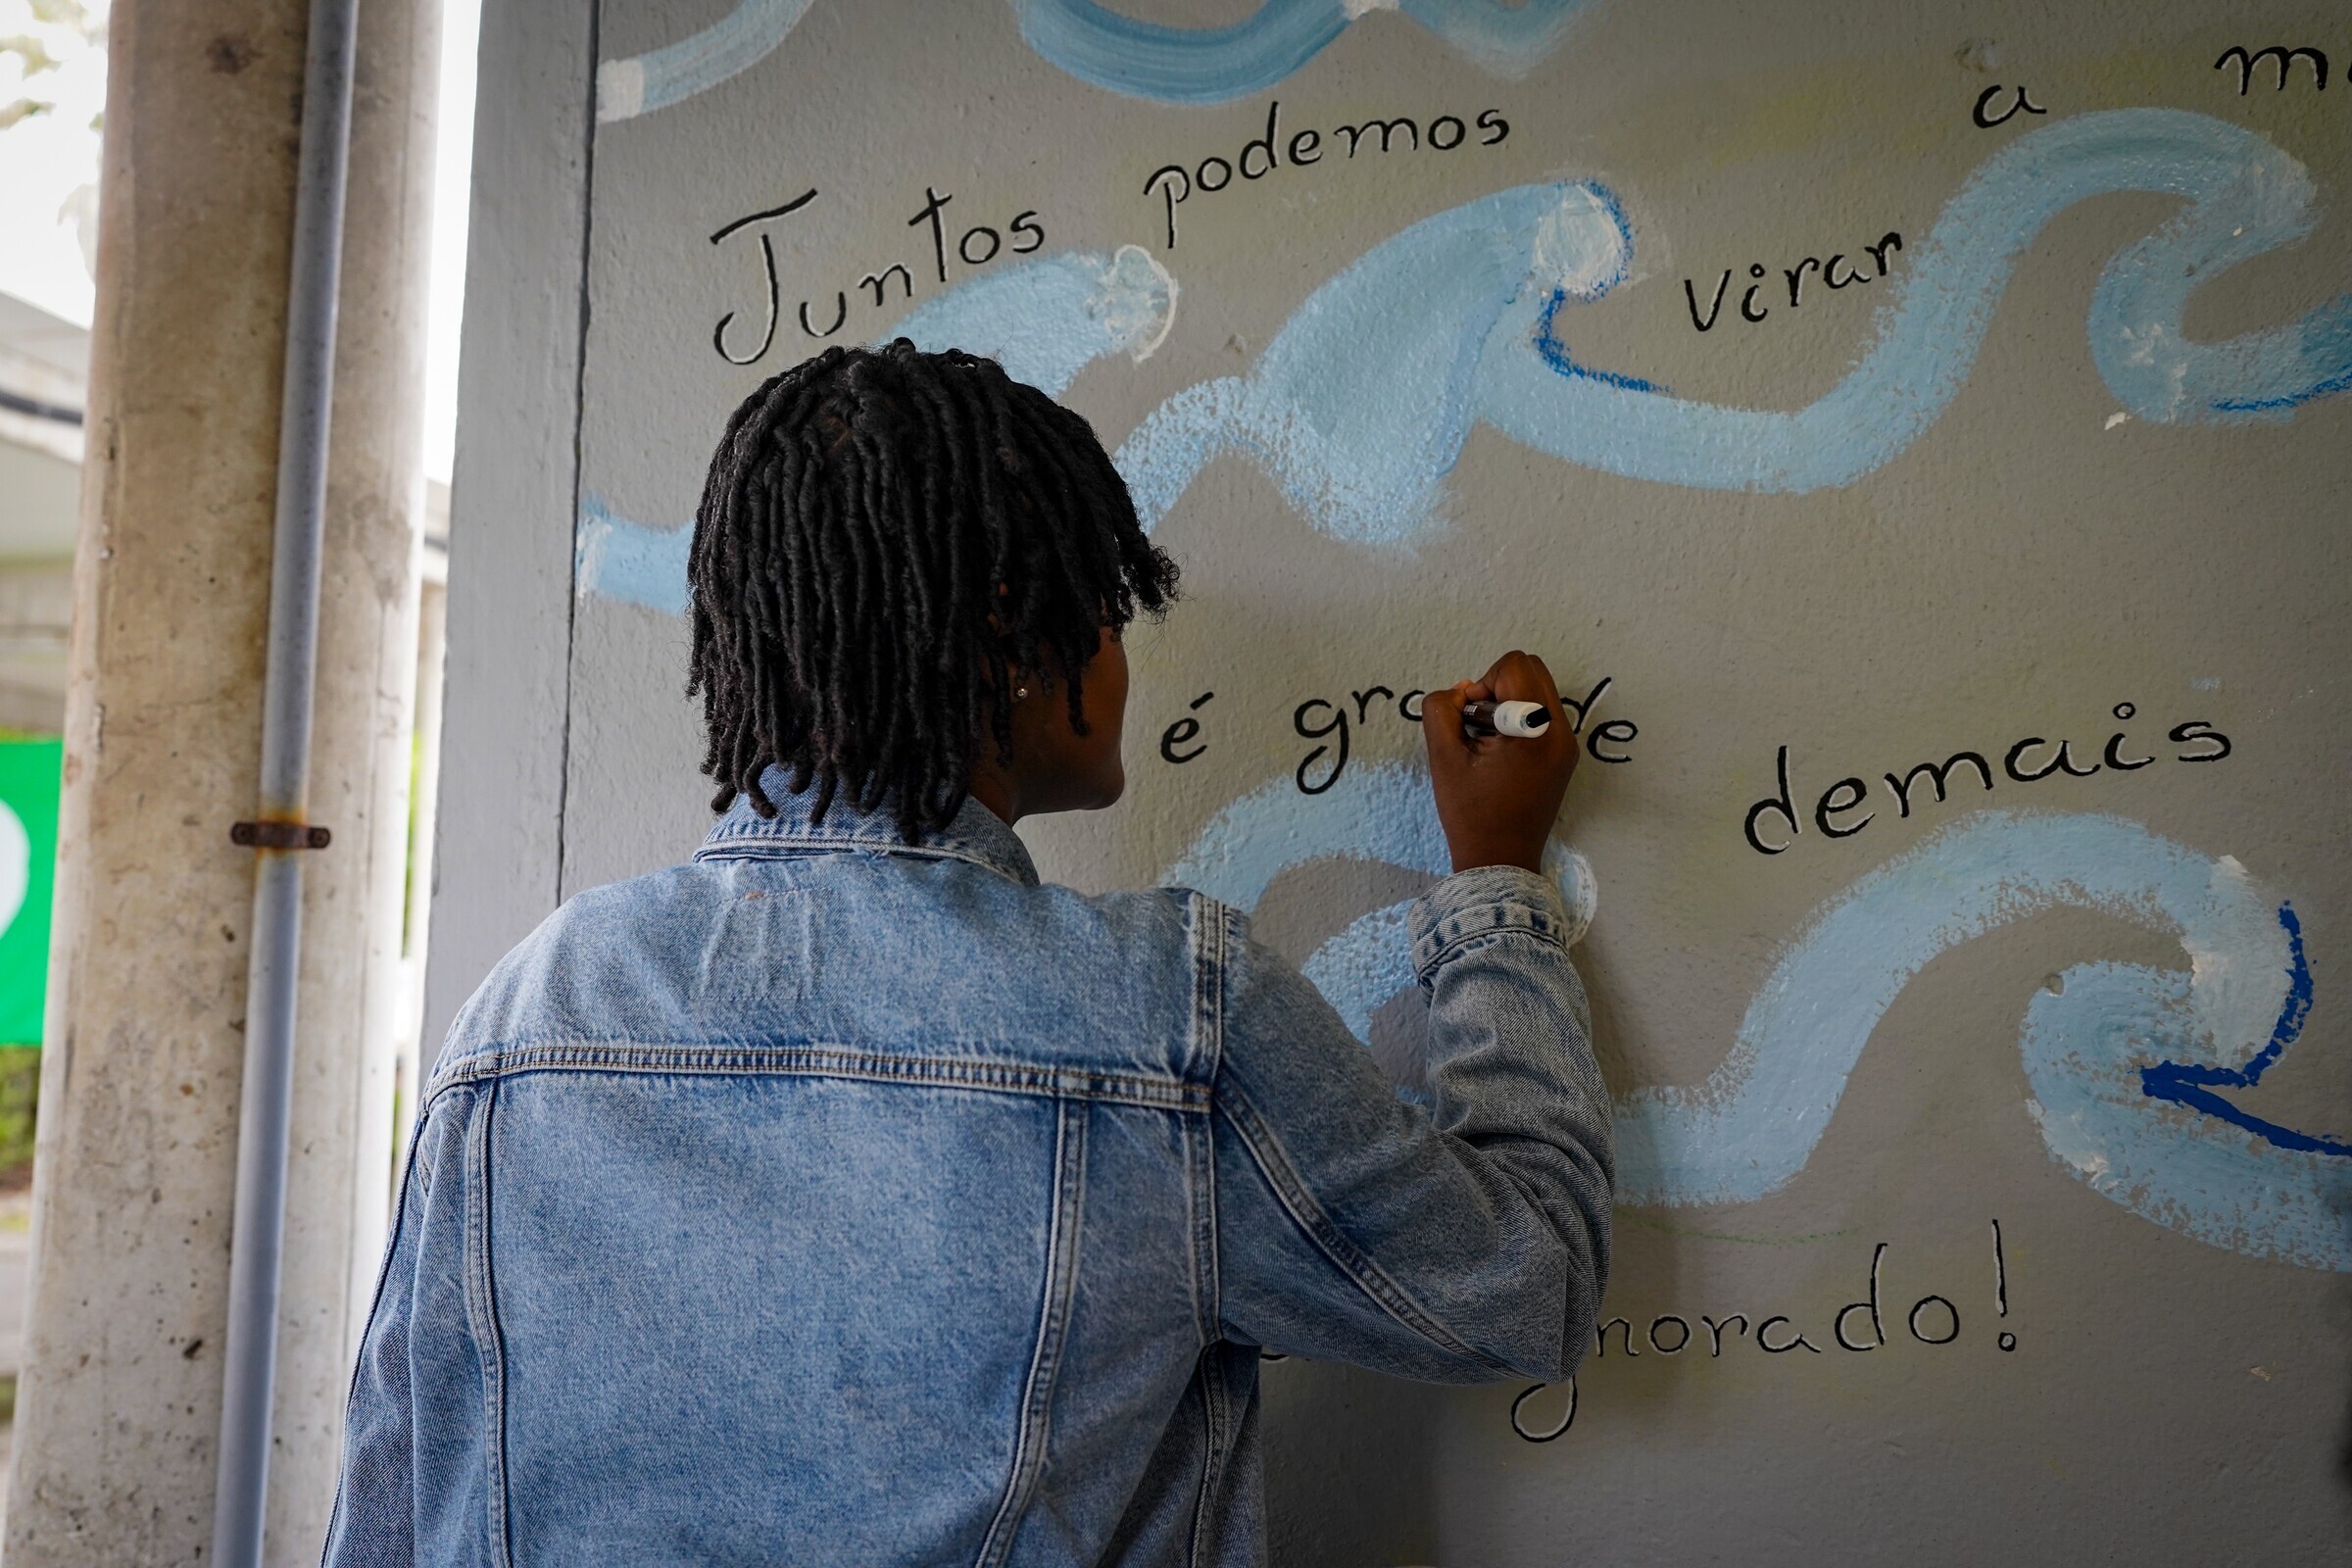 Juntos podemos virar a
é grande demais
norado!